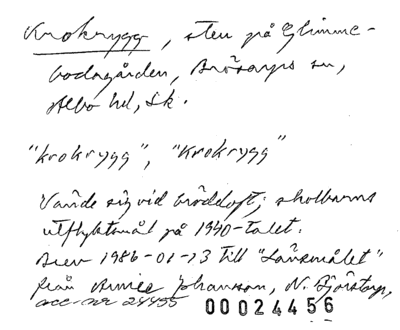 Krokrygg, sten på Glimme-
bodagården, Brösarps sn,
Albo hd, Sk.
"krokrygg", "Krokrygg"
Vände sig vid bröddoft; skolbarns
utflyktsmål på 1940-talet.
Brev 1986-01-13 till "Länsmålet"
från Annie Johansson, N. Sjöstorp,
acc. nr 24455 00024456